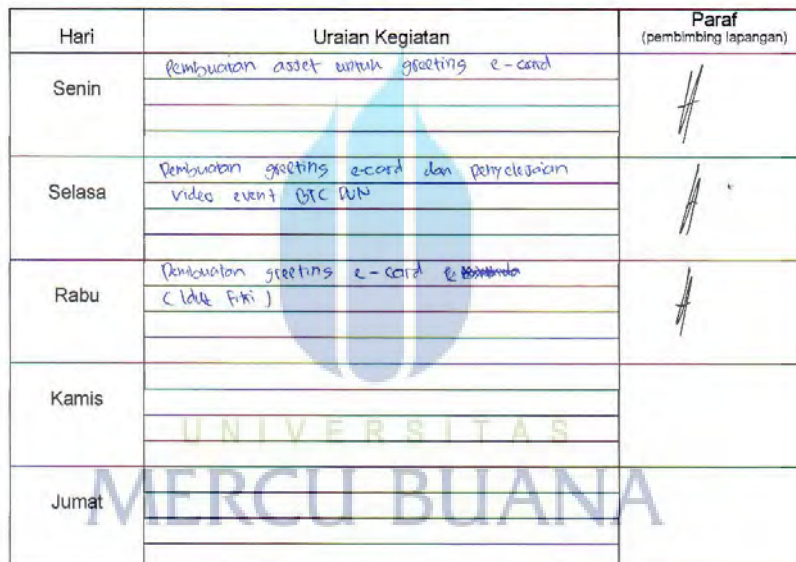 Hari Uraian Kegiatan Paraf
(pembimbing lapangan)
Senin
Pembuatan asset untuk greeting e-card
Selasa
Pembuatan greeting e-card dan penyelesaian
video event BTC
Rabu
Pembuatan greeting e-card
(Idul Fitri)
Kamis
UNIVERSITAS
Jumat
MERCU BUANA